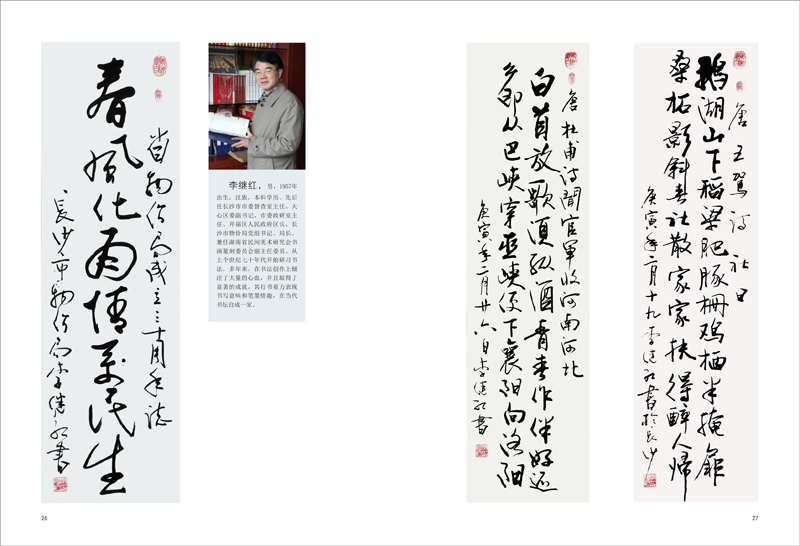 省物价局成立三十周年志
春風化雨情民生
长沙市物价局李继红書
李继红，男，1957年
出生，汉族，本科学历，先后
任长沙市市委督查室主任、天
心区委副书记、市委政研室主
任、开福区人民政府区长、长
沙市物价局党组书记、局长。
兼任湖南省民间美术研究会书
画篆刻委员会副主任委员。从
上个世纪七十年代开始研习书
法，多年来，在书法创作上倾
注了大量的心血，并且取得了
显著的成就。其行书着力表现
书写意味和笔墨情趣，在当代
书坛自成一家。
唐杜甫诗闻官軍收河南河北
白首放歌須纵酒青春作伴好还
乡即从巴峡穿巫峡便下襄阳向洛阳
庚寅年二月廿六日李继红書
唐王驾诗社日
鹅湖山下稻粱肥豚栅鸡栖半掩扉
桑柘影斜春社散家家扶得醉人歸
庚寅年二月十九李继红書於长沙
26
27